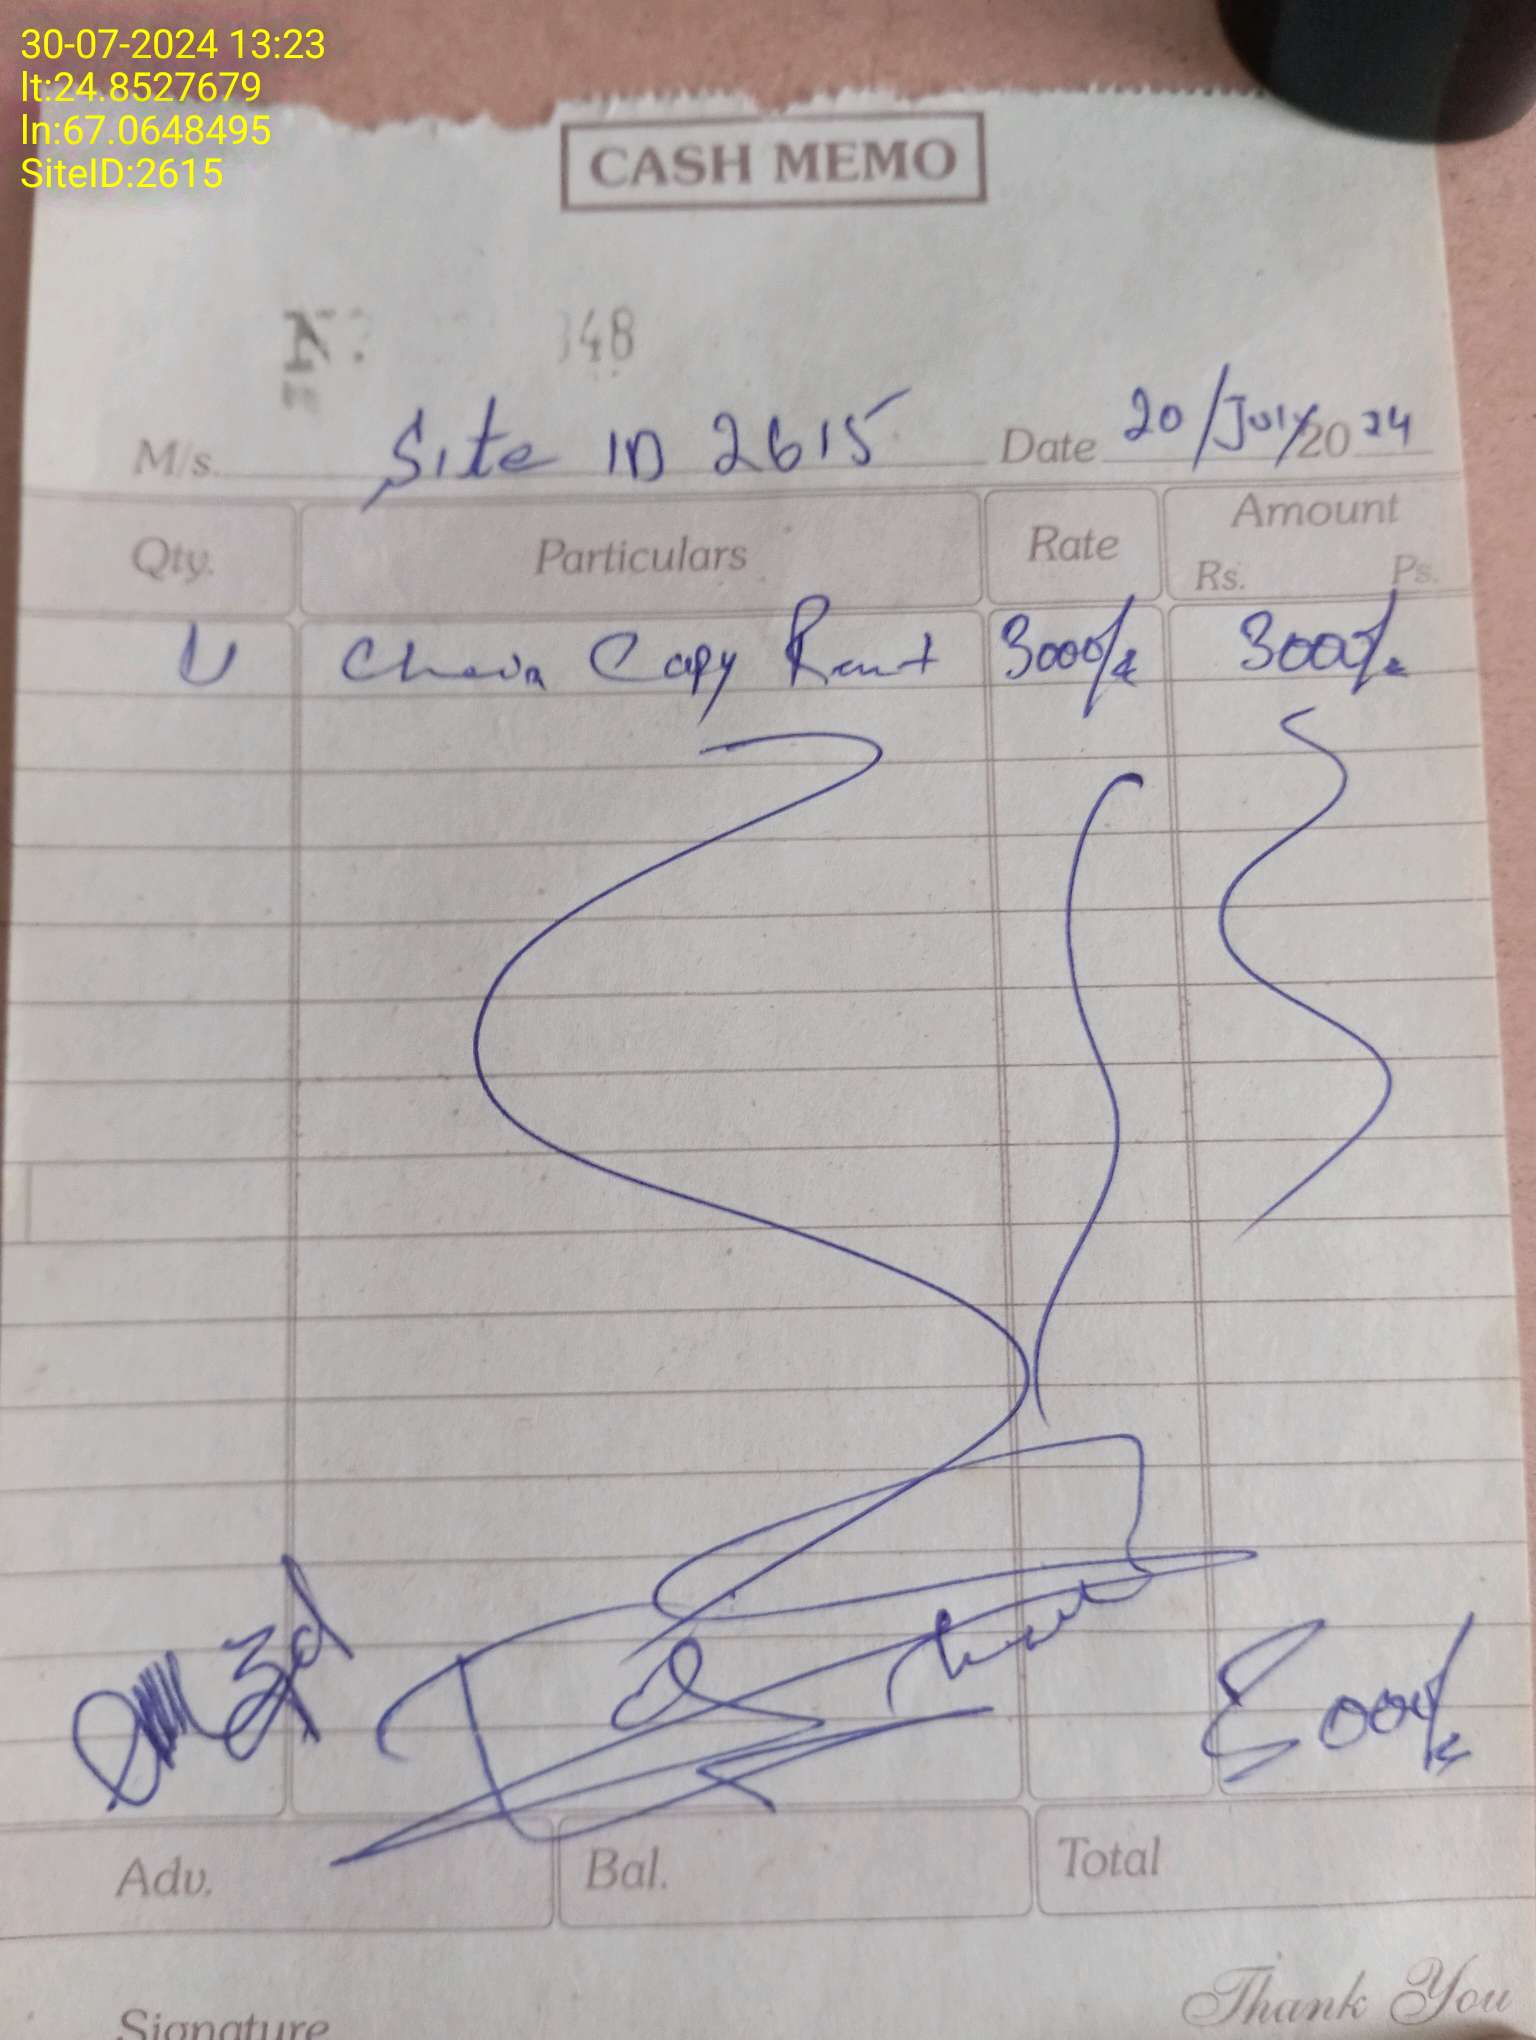 30-07-2024 13:23
lt:24.8527679
ln:67.0648495
SiteID:2615
CASH MEMO
348
M/s. Site ID 2615 Date 20/July/2024
Qty. Particulars Rate Amount
Rs. Ps.
Copy Rent 3000/- 3000/-
000/-
Adv. Bal. Total
Thank You
Signature